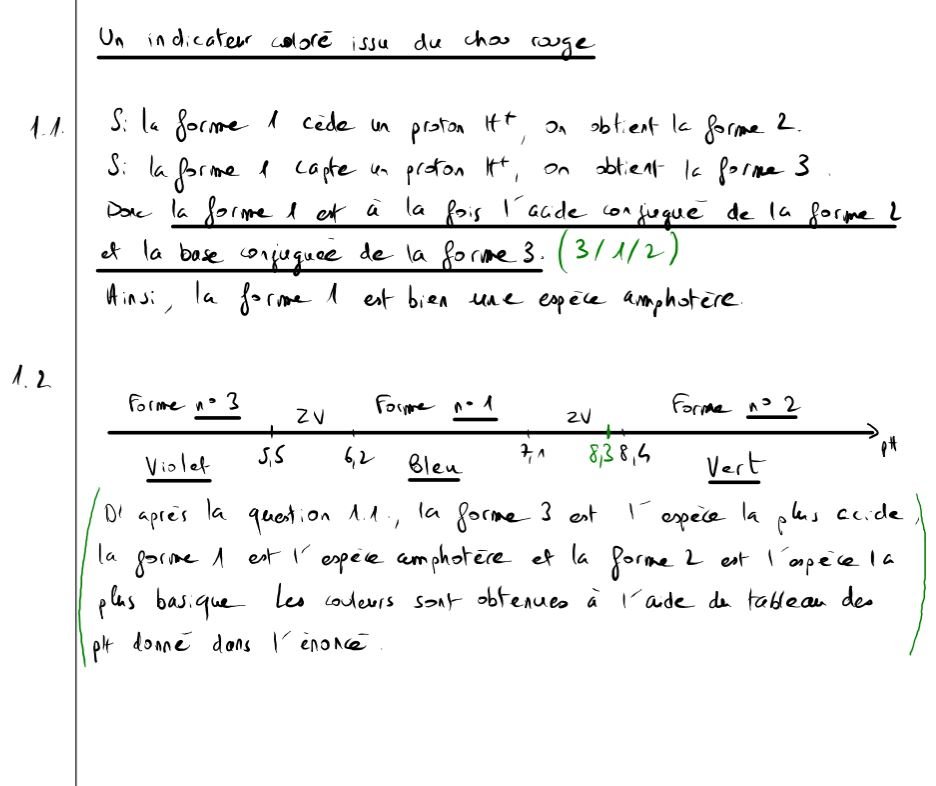 Un indicateur coloré issu du chou rouge
1.1. Si la forme 1 cède un proton H+, on obtient la forme 2.
Si la forme 1 capte un proton H+, on obtient la forme 3.
Donc la forme 1 est à la fois l'acide conjugué de la forme 2
et la base conjuguée de la forme 3. (3/1/2)
Ainsi, la forme 1 est bien une espèce amphotère.
1.2
Forme n° 3 ZV Forme n° 1 ZV Forme n° 2
5,5 6,2 7,1 8,3 8,4 pH
Violet Bleu Vert
(D'après la question 1.1., la forme 3 est l'espèce la plus acide,
la forme 1 est l'espèce amphotère et la forme 2 est l'espèce la
plus basique. Les couleurs sont obtenues à l'aide du tableau des
pH donné dans l'énoncé.)